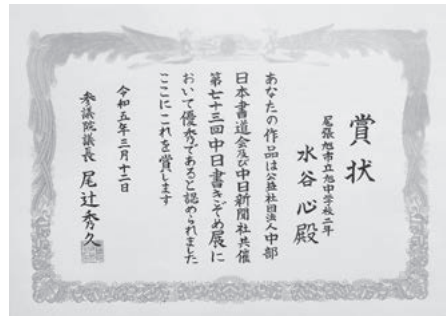 賞状
尾張旭市立旭中学校二年
水谷心殿
あなたの作品は公益社団法人中部
日本書道会及び中日新聞社共催
第七十三回中日書きぞめ展に
おいて優秀であると認められました
ここにこれを賞します
令和五年三月十二日
参議院議長 尾辻秀久